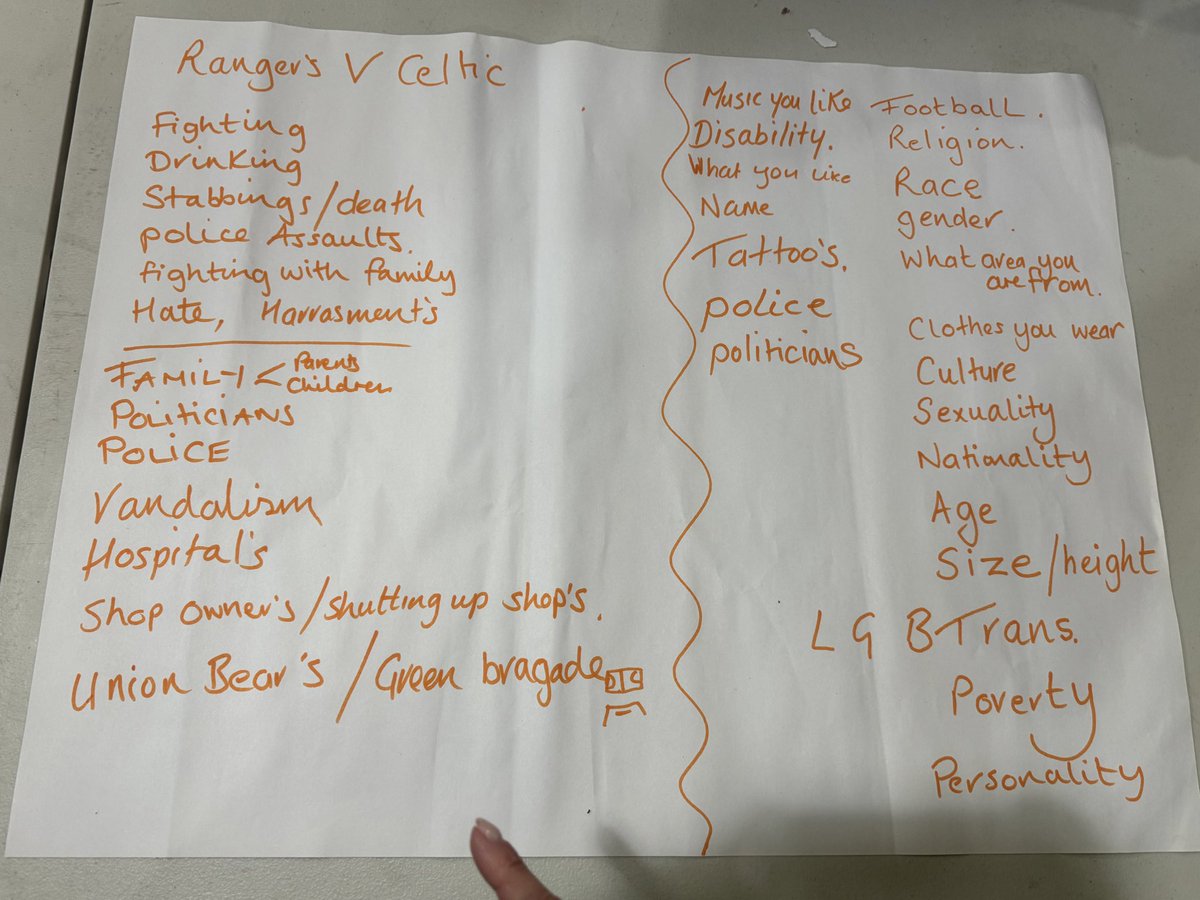 Ranger's V Celtic
Fighting
Drinking
Stabbings/death
police Assaults.
fighting with family
Hate, Harrasment's
FAMILY < Parents
Children
POLITICIANS
POLICE
Vandalism
Hospital's
Shop owner's/shutting up shop's.
Union Bear's / Green bragade
Music you like
Disability.
What you Like
Name
Tattoo's.
police
politicians
Football.
Religion.
Race
gender.
What area you
are from.
Clothes you wear
Culture
Sexuality
Nationality
Age
Size/height
LGBTrans.
Poverty
Personality